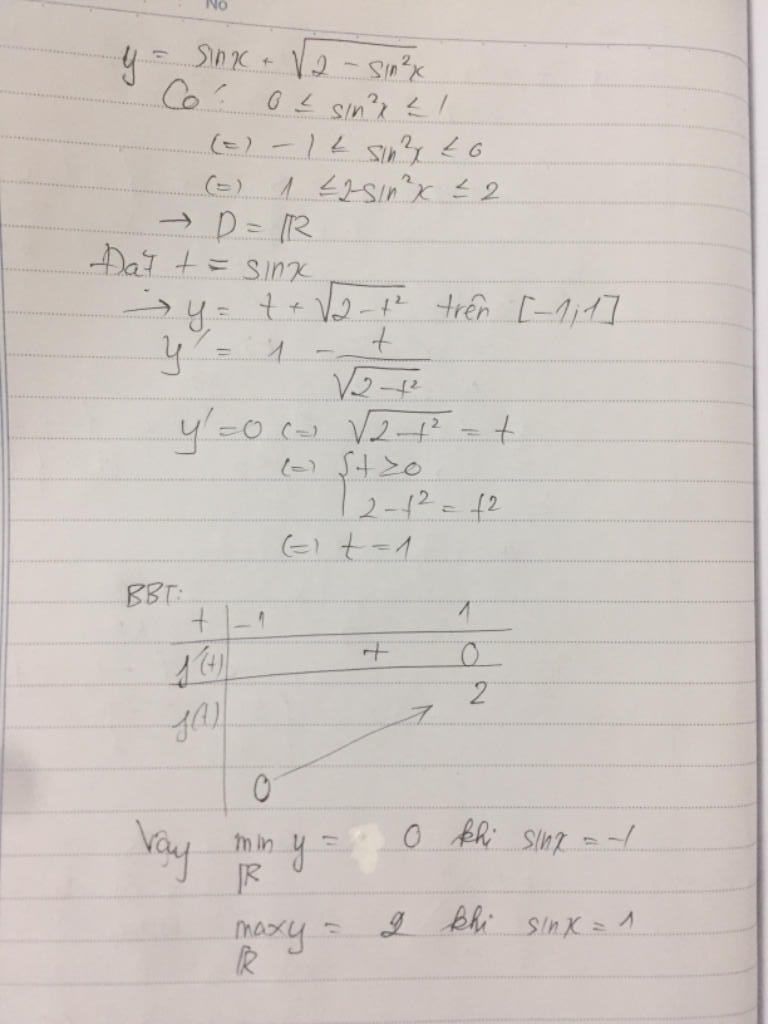 No
y = sinx + √(2 - sin²x)
Có: 0 ≤ sin²x ≤ 1
(=) -1 ≤ sin²x ≤ 0
(=) 1 ≤ 2-sin²x ≤ 2
→ D = ℝ
Đặt t = sinx
→ y = t + √(2-t²) trên [-1;1]
y' = 1 - t/√(2-t²)
y'=0 (=) √(2-t²) = t
(=) { t ≥ 0
2-t² = t²
(=) t = 1
BBT:
t -1 1
f'(t) + 0
f(t) 2
0
Vậy min y = 0 khi sinx = -1
ℝ
max y = 2 khi sinx = 1
ℝ